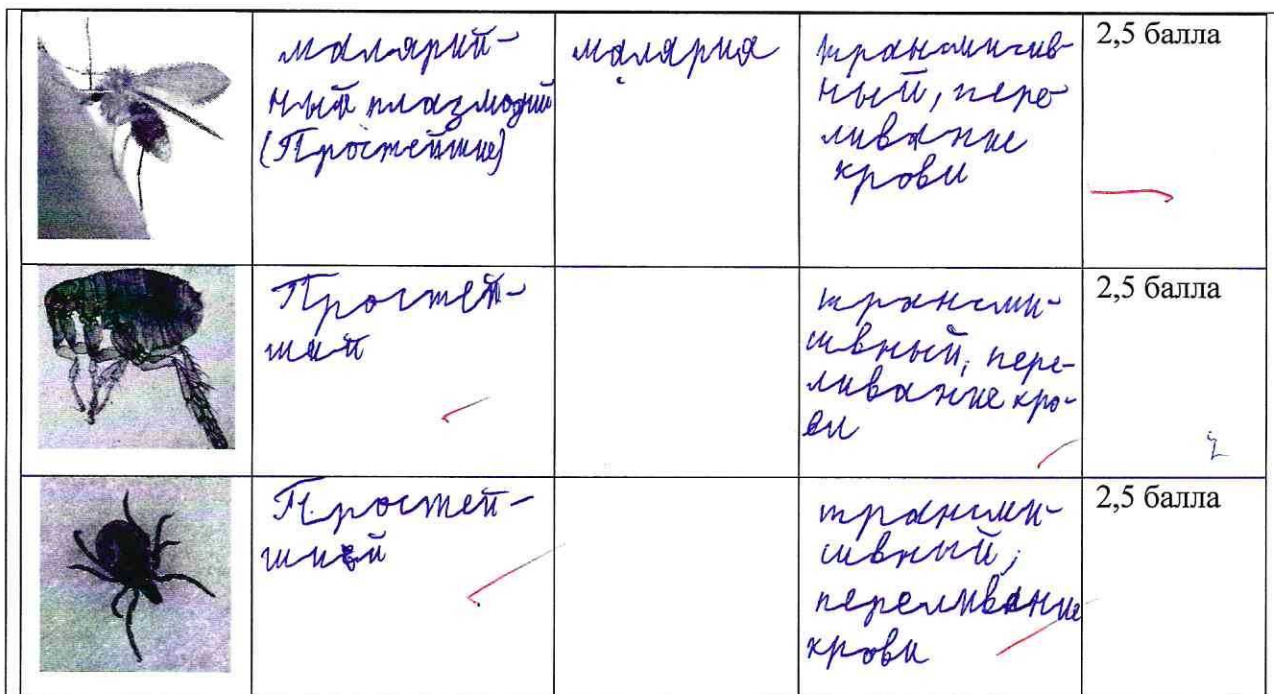 малярий-
ный плазмодий
(Простейшие)
малярия
трансмиссив-
ный, пере
ливание
крови
2,5 балла
Простей-
ший
трансми-
сивный, пере-
ливание кро-
ви
2,5 балла
Простей-
ший
трансми-
сивный,
переливание
крови
2,5 балла